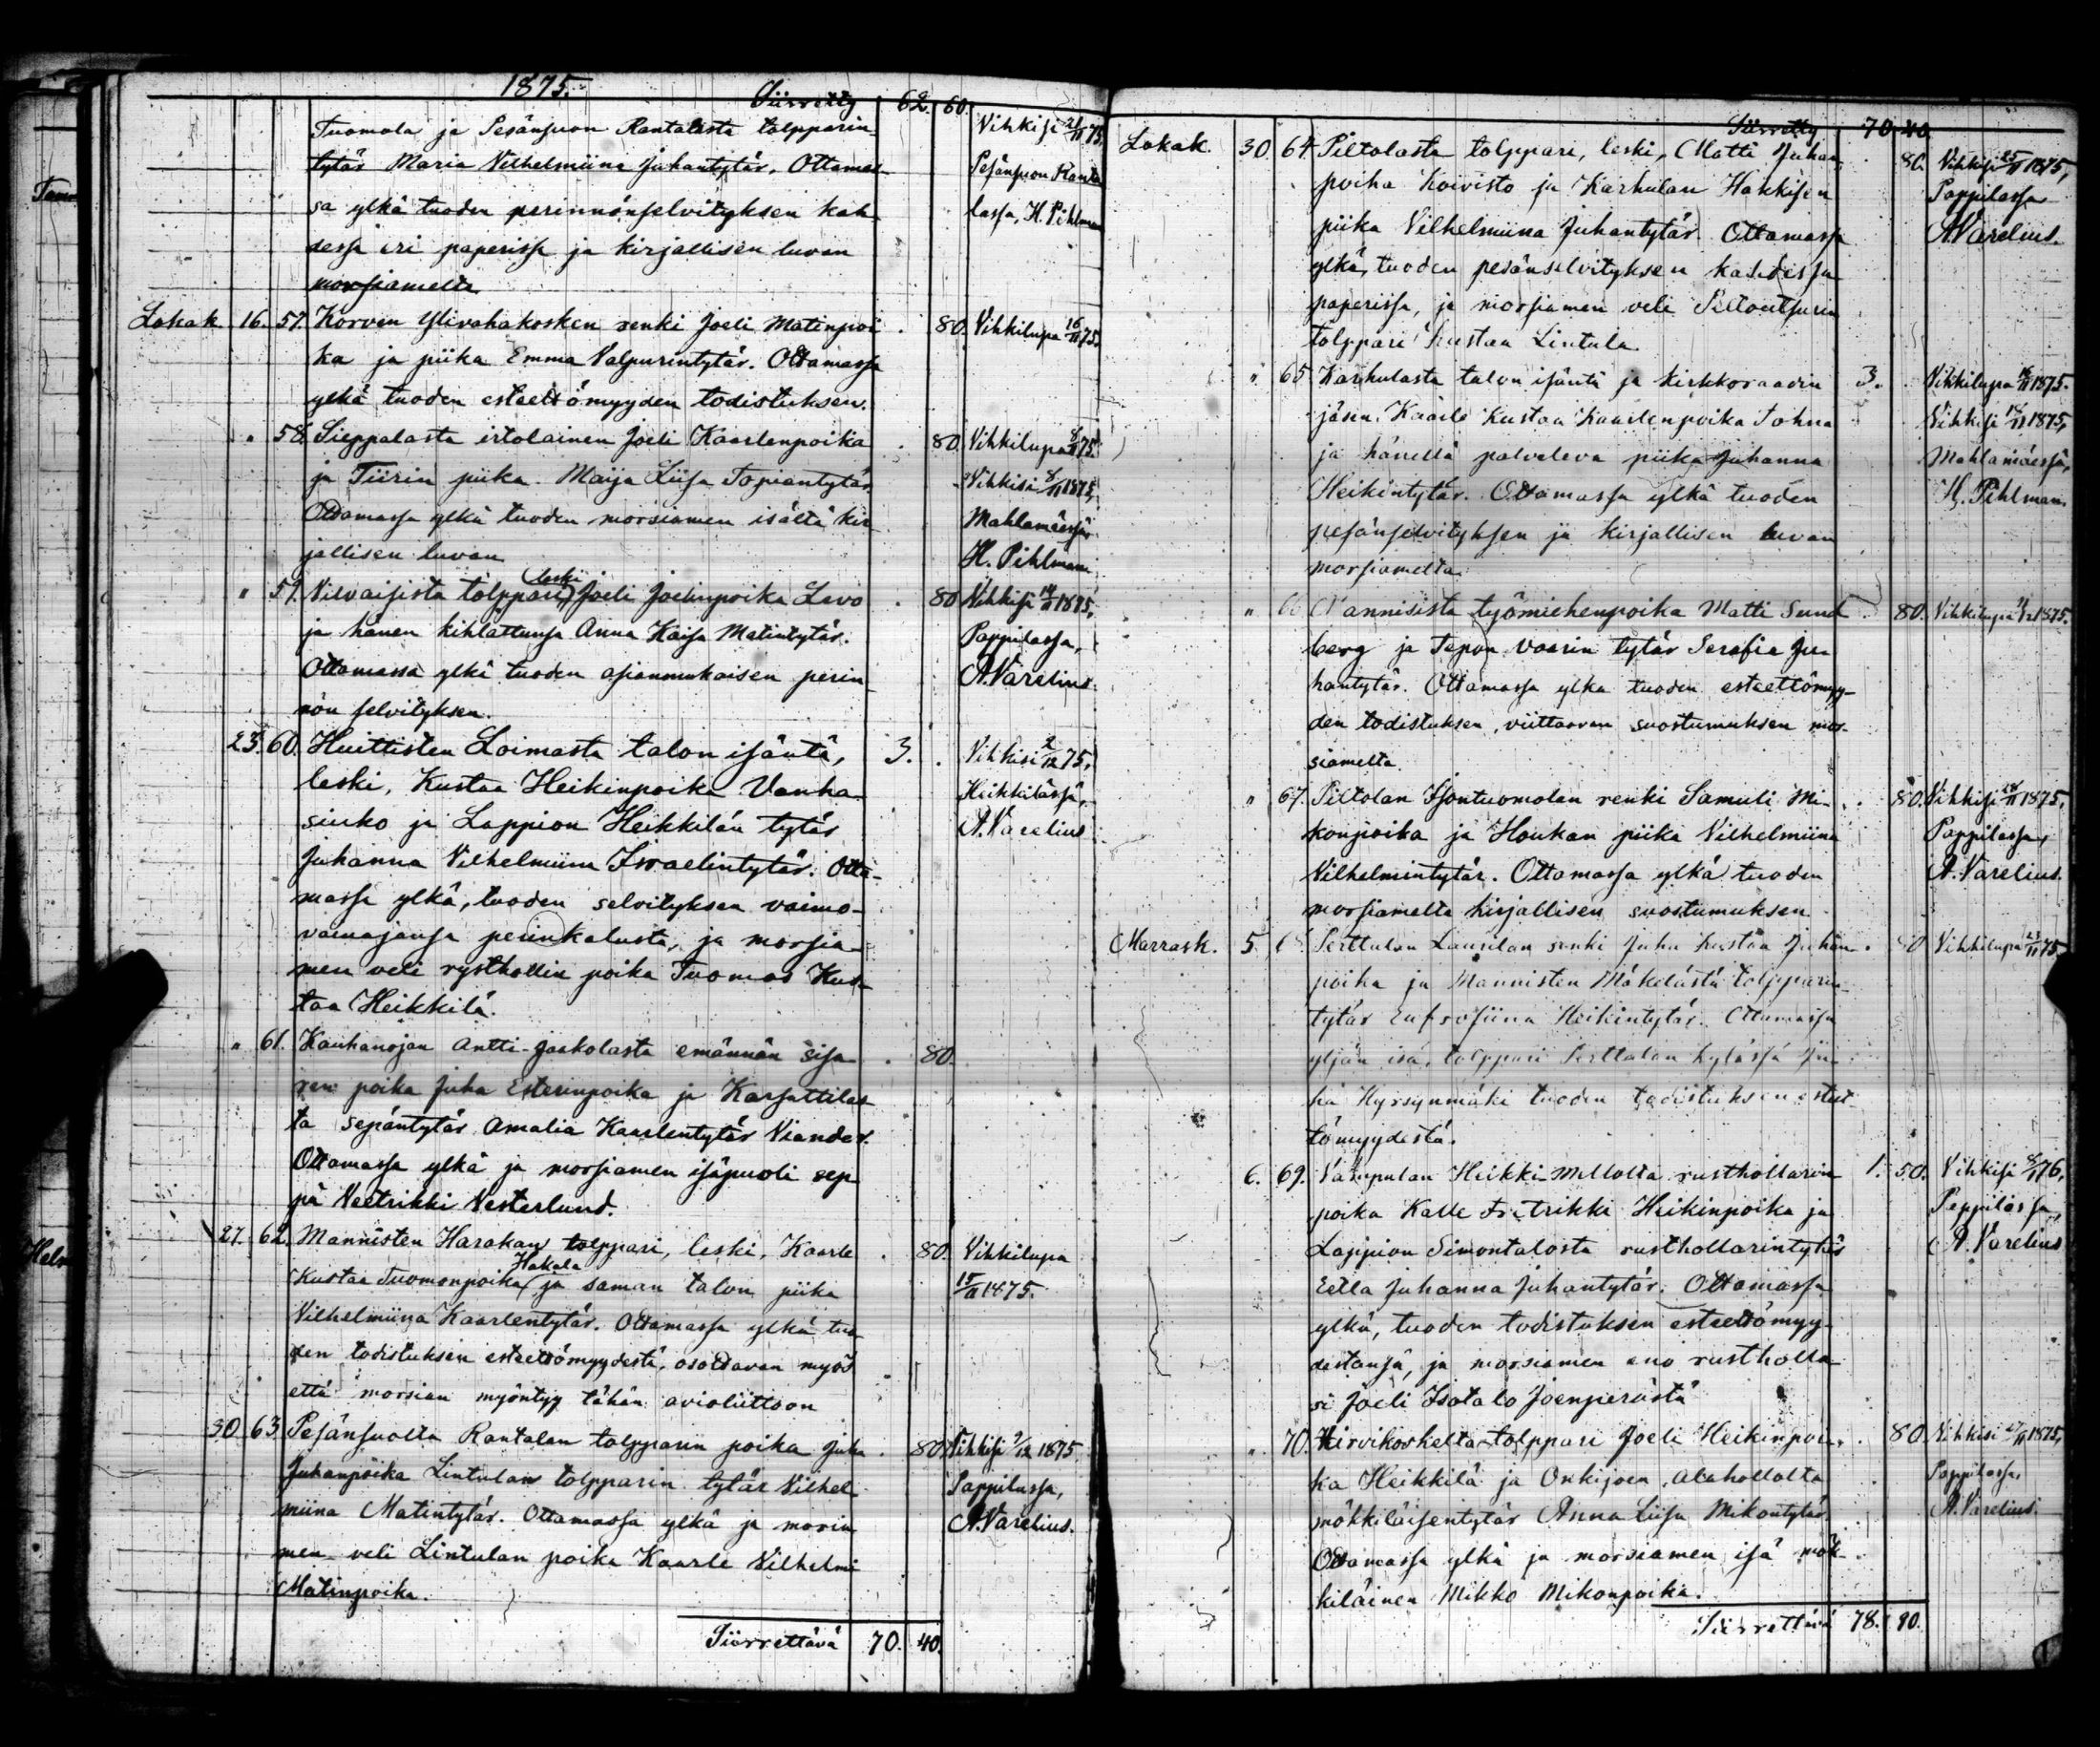 1875.
Siirretty 62. 60.
Tuomola ja Pesänsuon Rantalasta tolpparin-
tytär Maria Vilhelmiina Juhantytär. Ottamas-
sa ylkä tuoden perinnönselvityksen kah-
dessa eri paperissa ja kirjallisen luvan
morsiamelta
Vihkisi 75,
Pesänsuon Ranta
lassa, H. Pihlman
Lokak. 16. 57. Korven Ylivahakosken renki Joeli Matinpoi . 80. Vihkilupa 16/11 75.
ka ja piika Emma Valpurintytär. Ottamassa
ylkä tuoden esteettömyyden todistuksen.
" 58. Sieppalasta irtolainen Joeli Kaarlenpoika . 80. Vihkilupa 8/11 75.
ja Tiirin piika Maija Liisa Topiantytär.
Ottamassa ylkä tuoden morsiamen isältä kir
jallisen luvan
Vihkisi 8/11 1875,
Mahlamäessä
H. Pihlman
" 59. Vilvaisista tolppari, leski Joeli Joelinpoika Levo . 80 Vihkisi 14/11 1875,
ja hänen kihlattunsa Anna Kaisa Matintytär.
Ottamassa ylkä tuoden asianmukaisen perin
nön selvityksen.
Pappilassa,
A. Varelius.
23. 60. Huittisten Loimasta talon isäntä, 3. . Vihkisi 2/12 75,
leski, Kustaa Heikinpoika Vanha
siuko ja Lappion Heikkilän tytär
Juhanna Vilhelmiina Israelintytär. Otta-
massa ylkä, tuoden selvityksen vaimo-
vainajansa perinkalusta, ja morsia-
men veli rysthollin poika Tuomas Kus-
taa Heikkilä.
Heikkilässä,
A. Varelius
" 61. Kauhanojan Antti-Jaakolasta emännän sisa . 80.
ren poika Juha Esterinpoika ja Karsattilas
ta sepäntytär Amalia Kaarlentytär Viander.
Ottamassa ylkä ja morsiamen isäpuoli sep
pä Veetrikki Vesterlund.
27. 62. Mannisten Harakan tolppari, leski, Kaarle . 80. Vihkilupa
Kustaa Tuomonpoika Hakala ja saman talon piika 15/11 1875.
Vilhelmiina Kaarlentytär. Ottamassa ylkä tuo
den todistuksen esteettömyydestä, osottavan myös
että morsian myöntyy tähän avioliittoon
30. 63. Pesänsuolta Rantalan tolpparin poika Juha . 80. Vihkisi 7/12 1875
Juhanpoika Lintulan tolpparin tytär Vilhel
miina Matintytär. Ottamassa ylkä ja morsia
men veli Lintulan poika Kaarle Vilhelmi
Matinpoika.
Pappilassa,
A. Varelius.
Siirrettävä 70. 40.
Siirretty 70 40
Lokak. 30. 64. Piltolasta tolppari, leski, Matti Juhan . 80. Vihkisi 25/11 1875,
poika Koivisto ja Karhulan Hakkisen
piika Vilhelmiina Juhantytär. Ottamassa
ylkä, tuoden pesänselvityksen kahdessa
paperissa, ja morsiamen veli
tolppari Kustaa Lintula
Pappilassa
A. Varelius.
" 65 Karhulasta talon isäntä ja kirkkoraadin 3. Vihkilupa 1875.
jäsen Kaarle Kustaa Kaarlenpoika Tohna
ja hänellä palveleva piika Juhanna
Heikintytär. Ottamassa ylkä tuoden
pesänselvityksen ja kirjallisen luvan
morsiamelta.
Vihkisi 18/11 1875,
Mahlamäessä,
H. Pihlman.
" 66 Nannisista työmiehenpoika Matti Sund 80. Vihkilupa 1875.
berg ja Tapon Voorin tytär Serafia Ju
hantytär. Ottamassa ylkä tuoden esteettömyy-
den todistuksen, viittaavan suostumuksen mor-
siamelta.
" 67. Piltolan Isontuomolan renki Samuli Mi- . 80. Vihkisi 28/11 1875,
konpoika ja Houkan piika Vilhelmiina
Vilhelmintytär. Ottamassa ylkä tuoden
morsiamelta kirjallisen suostumuksen
Pappilassa,
A. Varelius.
Marrask. 5. Perttulan Laurilan renki Juha Kustaa Juhan- . 80 Vihkilupa 23/11 75.
poika ja Mannisten Mäkelästä tolpparin-
tytär Eufrosiina Heikintytär. Ottamassa
yljän isä, tolppari Perttulan kylässä Ju-
ha Hyrsynmäki tuoden todistuksen esteet-
tömyydestä.
6. 69. Vampulan Heikki-Mellolta rusthollarin 1. 50. Vihkisi 76,
poika Kalle Fretrikki Heikinpoika ja
Lappion Simontalosta rusthollarintytär
Eella Juhanna Juhantytär. Ottamassa
ylkä, tuoden todistuksen esteettömyy-
destänsä, ja morsiamen eno rustholla
ri Joeli Isotalo Joenperästä
Pappilassa,
A. Varelius
" 70. Hirvikoskelta tolppari Joeli Heikinpoi- . 80. Vihkisi 1875,
ka Heikkilä ja Onkijoen Alahollolta
mökkiläisentytär Anna Liisa Mikontytär.
Ottamassa ylkä ja morsiamen isä mök-
kiläinen Mikko Mikonpoika.
Pappilassa
A. Varelius.
Siirrettävä 78. 90.